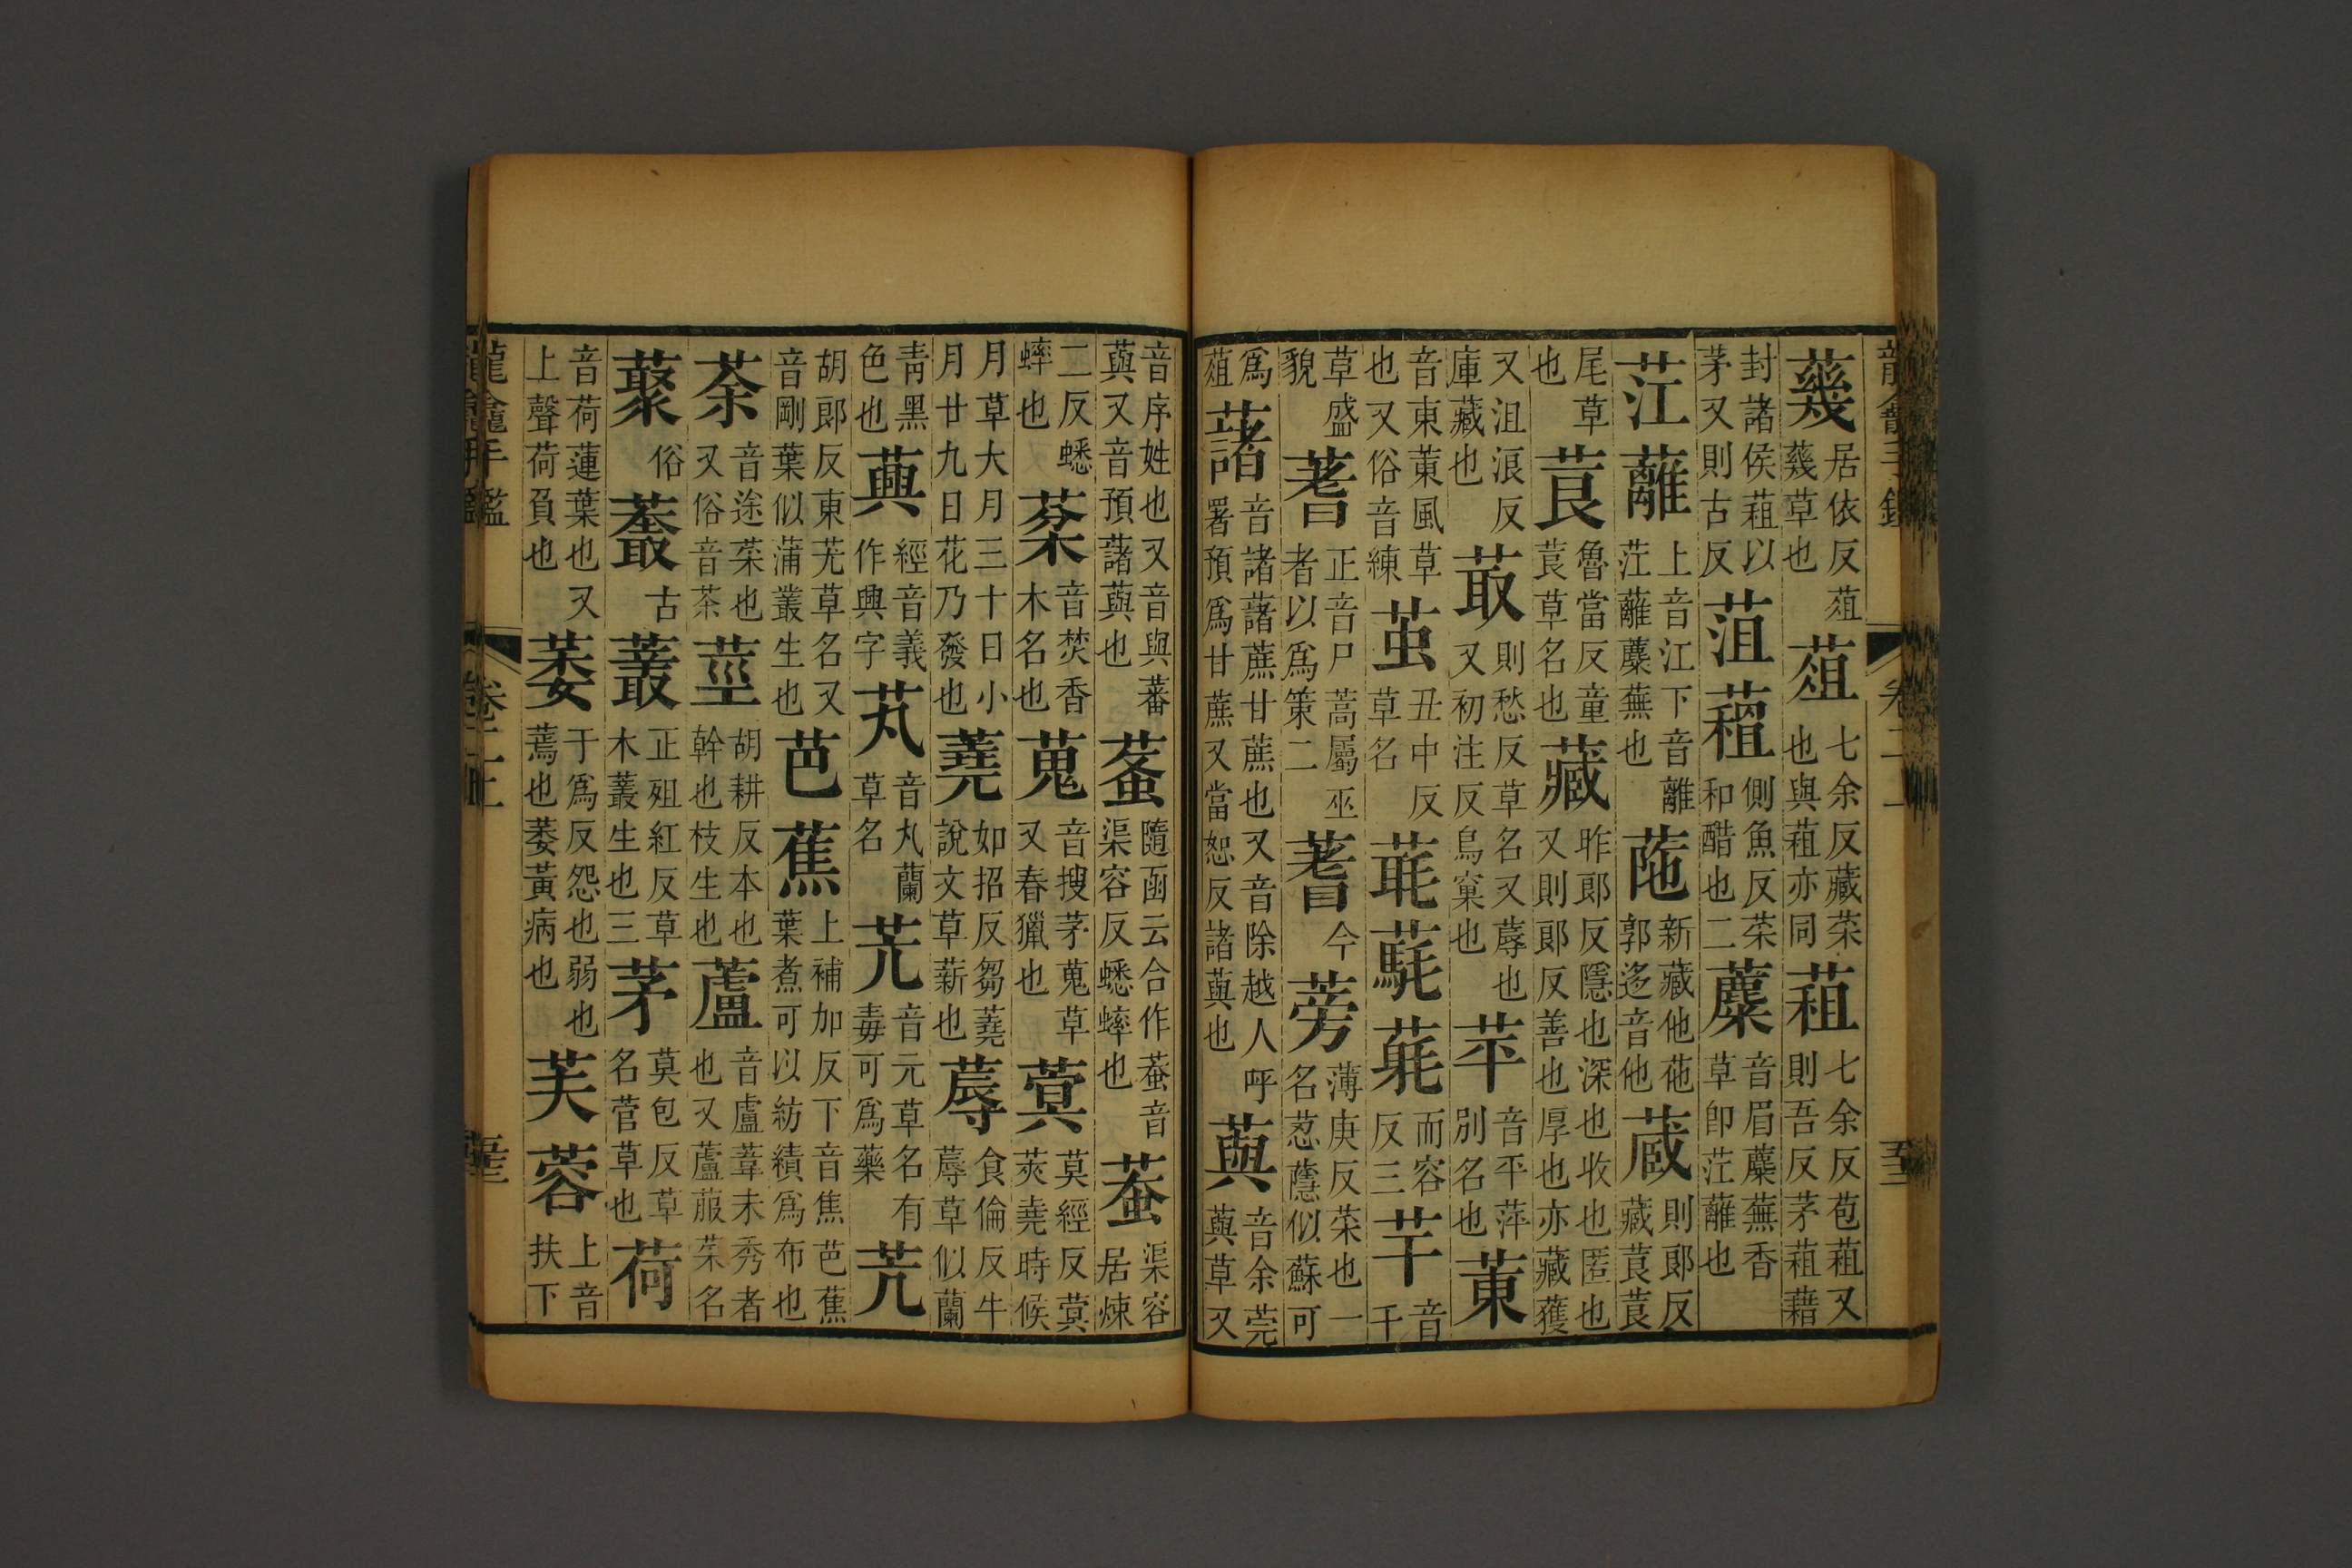 蘷居依反蒩蘷草也蒩七余反藏菜也與蒩亦同蒩七余反苞蒩又則吾反茅蒩藉
封諸侯蒩以茅又則古反菹蒩側魚反菜和醋也二蘪音眉蘪蕪香草即茳蘺也
茳蘺上音江下音離茳蘺蘪蕪也䓕新藏他䓕郭迻音他蔵則郎反藏莨莨
尾草也莨魯當反童莨草名也藏昨郎反隱也深也收也匿也又則郎反善也厚也亦藏獲
又沮浪反庫藏也菆則愁反草名又蓐也又初注反鳥窠也苹音平萍別名也菄
音東菄風草也又俗音練䒚丑中反草名而容反三芊音千
草盛貌蓍正音尸蒿屬巫者以為策二蓍今蒡薄庚反菜也一名䓤蘟似蘇可
為蒩藷音諸藷蔗甘蔗也又音除越人呼署預為甘蔗又當恕反諸藇也藇音余莞藇草又
音序姓也又音與蕃藇又音預藷藇也隨函云合作蛬音渠容反蟋蟀也蛬渠容居煉
二反蟋蟀也棻音焚香木名也蒐音搜茅蒐草又春獵也蓂莫經反蓂莢堯時候
月草大月三十日小月廿九日花乃發也蕘如招反芻蕘說文草薪也蓐食倫反牛蓐草似蘭
青黑色也經音義作興字芄音丸蘭草名芫音元草名有毒可為藥䒢
胡郎反東䒢草名又音剛葉似蒲叢生也芭蕉上補加反下音焦芭蕉葉煮可以紡績為布也
荼音途菜也又俗音茶莖胡耕反本也幹也枝生也蘆音盧葦未秀者也又蘆菔菜名
藂俗古叢正㱿紅反草木叢生也三茅莫包反草名菅草也荷
音荷蓮葉也又上聲荷負也萎于為反怨也弱也蔫也萎黃病也芙蓉上音扶下
龍龕手鑑 卷二上